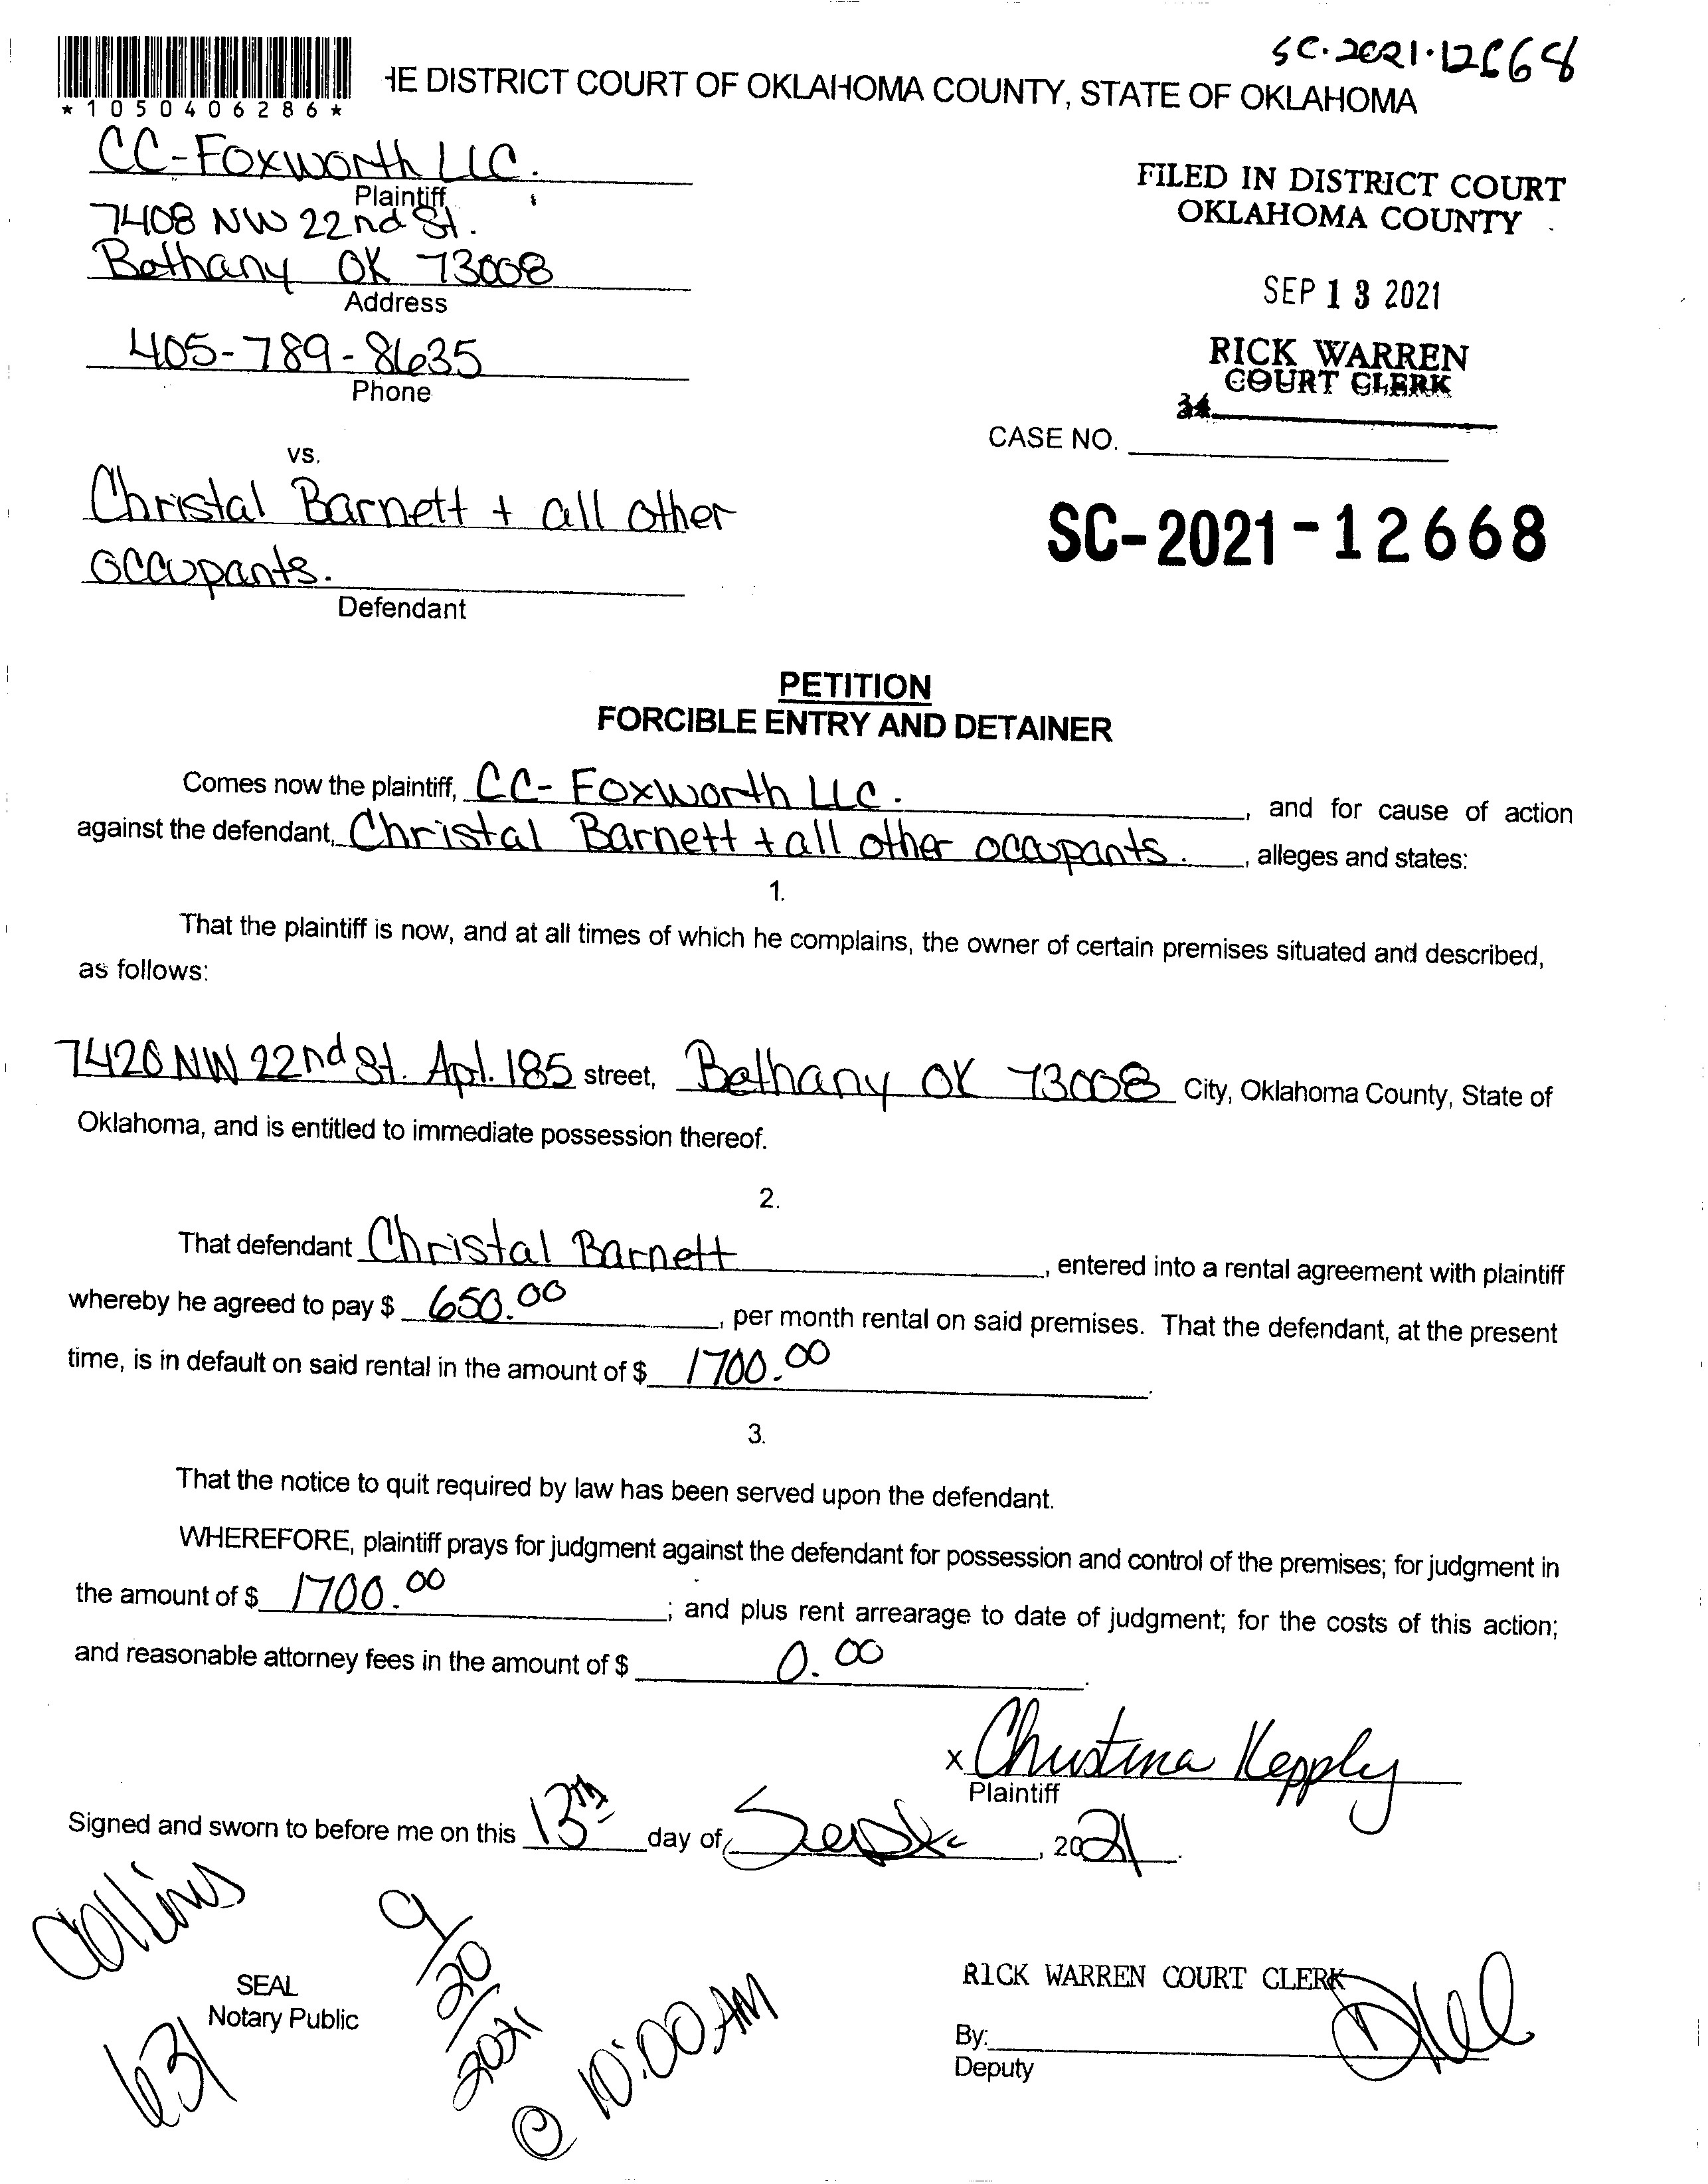 SC-2021-12668
*1050406286*
HE DISTRICT COURT OF OKLAHOMA COUNTY, STATE OF OKLAHOMA
CC-Foxworth LLC.
Plaintiff
7408 NW 22nd St.
Bethany OK 73008
Address
405-789-8635
Phone
FILED IN DISTRICT COURT
OKLAHOMA COUNTY
SEP 13 2021
RICK WARREN
COURT CLERK
34
CASE NO.
vs.
Christal Barnett + all other
occupants.
Defendant
SC-2021-12668
PETITION
FORCIBLE ENTRY AND DETAINER
Comes now the plaintiff, CC-Foxworth LLC. , and for cause of action
against the defendant, Christal Barnett + all other occupants. , alleges and states:
1.
That the plaintiff is now, and at all times of which he complains, the owner of certain premises situated and described,
as follows:
7420 NW 22nd St. Apt. 185 street, Bethany OK 73008 City, Oklahoma County, State of
Oklahoma, and is entitled to immediate possession thereof.
2.
That defendant Christal Barnett , entered into a rental agreement with plaintiff
whereby he agreed to pay $ 650.00 , per month rental on said premises. That the defendant, at the present
time, is in default on said rental in the amount of $ 1700.00 .
3.
That the notice to quit required by law has been served upon the defendant.
WHEREFORE, plaintiff prays for judgment against the defendant for possession and control of the premises; for judgment in
the amount of $ 1700.00 ; and plus rent arrearage to date of judgment; for the costs of this action;
and reasonable attorney fees in the amount of $ 0.00 .
x Christina Kepply
Plaintiff
Signed and sworn to before me on this 13th day of , 2021.
Collins
631
SEAL
Notary Public
9/20/2021
@ 10:00 AM
RICK WARREN COURT CLERK
By:
Deputy